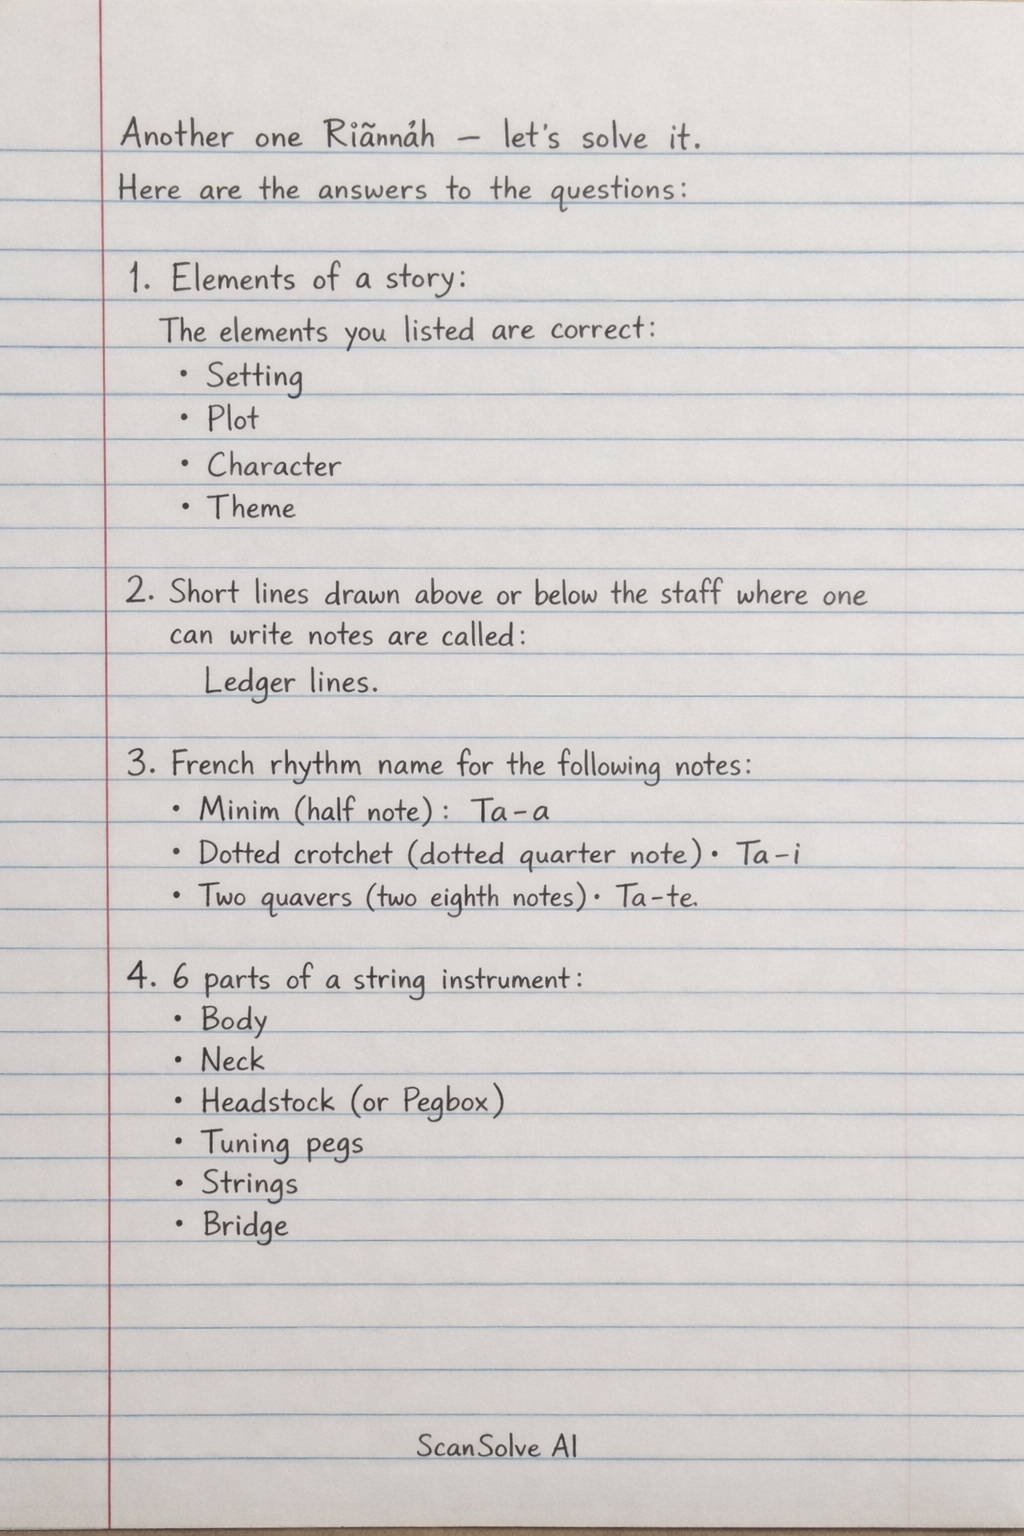 Another one Riãnnảh – let's solve it.
Here are the answers to the questions:
1. Elements of a story:
The elements you listed are correct:
• Setting
• Plot
• Character
• Theme
2. Short lines drawn above or below the staff where one
can write notes are called:
Ledger lines.
3. French rhythm name for the following notes:
• Minim (half note): Ta-a
• Dotted crotchet (dotted quarter note)· Ta-i
• Two quavers (two eighth notes)· Ta-te.
4. 6 parts of a string instrument:
• Body
• Neck
• Headstock (or Pegbox)
• Tuning pegs
• Strings
• Bridge
ScanSolve AI